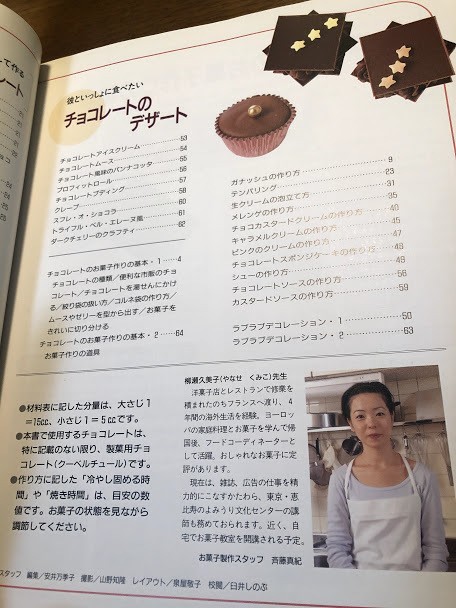 彼といっしょに食べたい
チョコレートの
デザート
チョコレートアイスクリーム 53
チョコレートムース 54
チョコレート風味のパンナコッタ 55
プロフィットロール 56
チョコレートプディング 57
クレープ 58
スフレ・オ・ショコラ 60
トライフル・ベル・エレーヌ風 61
ダークチェリーのクラフティ 62
チョコレートのお菓子作りの基本・1 4
チョコレートの種類／便利な市販のチョ
コレート／チョコレートを湯せんにかけ
る／絞り袋の扱い方／コルネ袋の作り方／
ムースやゼリーを型から出す／お菓子を
きれいに切り分ける
チョコレートのお菓子作りの基本・2 64
お菓子作りの道具
ガナッシュの作り方 9
テンパリング 23
生クリームの泡立て方 31
メレンゲの作り方 35
チョコカスタードクリームの作り方 40
キャラメルクリームの作り方 45
ピンクのクリームの作り方 47
チョコレートスポンジケーキの作り方 48
シューの作り方 49
チョコレートソースの作り方 58
カスタードソースの作り方 59
ラブラブデコレーション・1 50
ラブラブデコレーション・2 63
●材料表に記した分量は、大さじ1
＝15cc、小さじ1＝5ccです。
●本書で使用するチョコレートは、
特に記載のない限り、製菓用チョ
コレート(クーベルチュール)です。
●作り方に記した「冷やし固める時
間」や「焼き時間」は、目安の数
値です。お菓子の状態を見ながら
調節してください。
柳瀬久美子(やなせ くみこ)先生
洋菓子店とレストランで修業を
積まれたのちフランスへ渡り、4
年間の海外生活を経験。ヨーロッ
パの家庭料理とお菓子を学んで帰
国後、フードコーディネーターと
して活躍。おしゃれなお菓子に定
評があります。
現在は、雑誌、広告の仕事を精
力的にこなすかたわら、東京・恵
比寿のよみうり文化センターの講
師も務めておられます。近く、自
宅でお菓子教室を開講される予定。
お菓子製作スタッフ 斉藤真紀
スタッフ 編集／安井万季子 撮影／山野知隆 レイアウト／泉屋敬子 校閲／臼井しのぶ